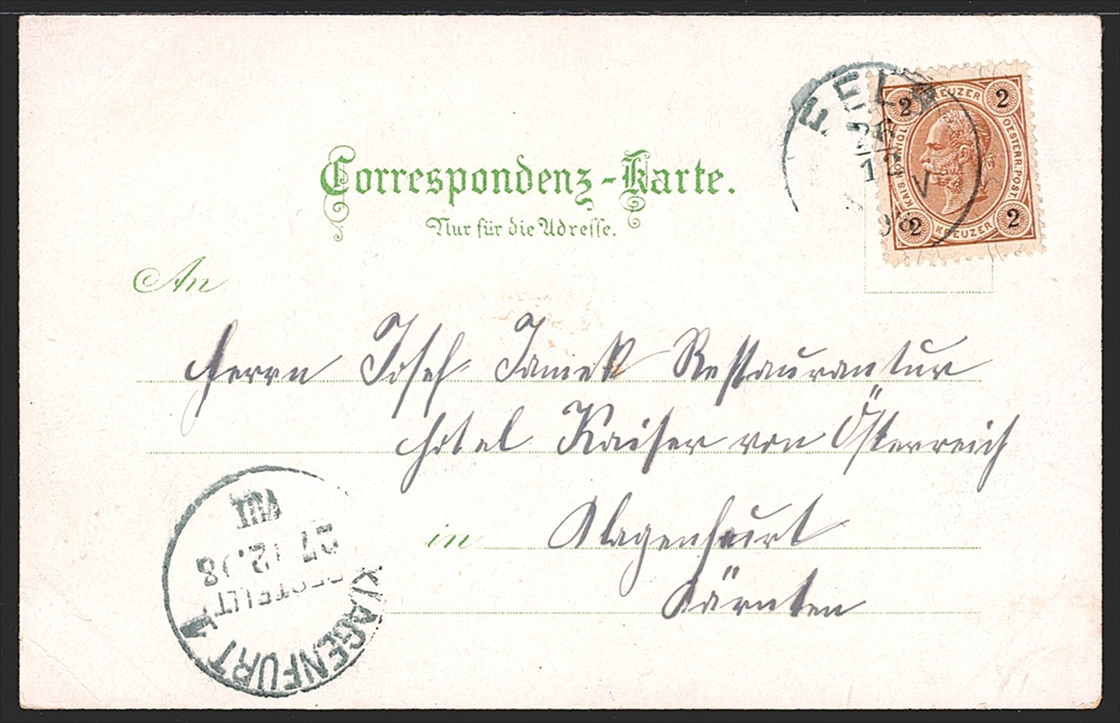 Correspondenz-Karte.
Nur für die Adresse.
2 KREUZER 2
KAIS. KÖNIGL. OESTERR. POST.
2 KREUZER 2
26
12
98
V
An
Herrn Josef Jamek Restaurantur
Hotel Kaiser von Österreich
in Klagenfurt
Kärnten
VIII
27.12.98
BESTELLT
KLAGENFURT 1